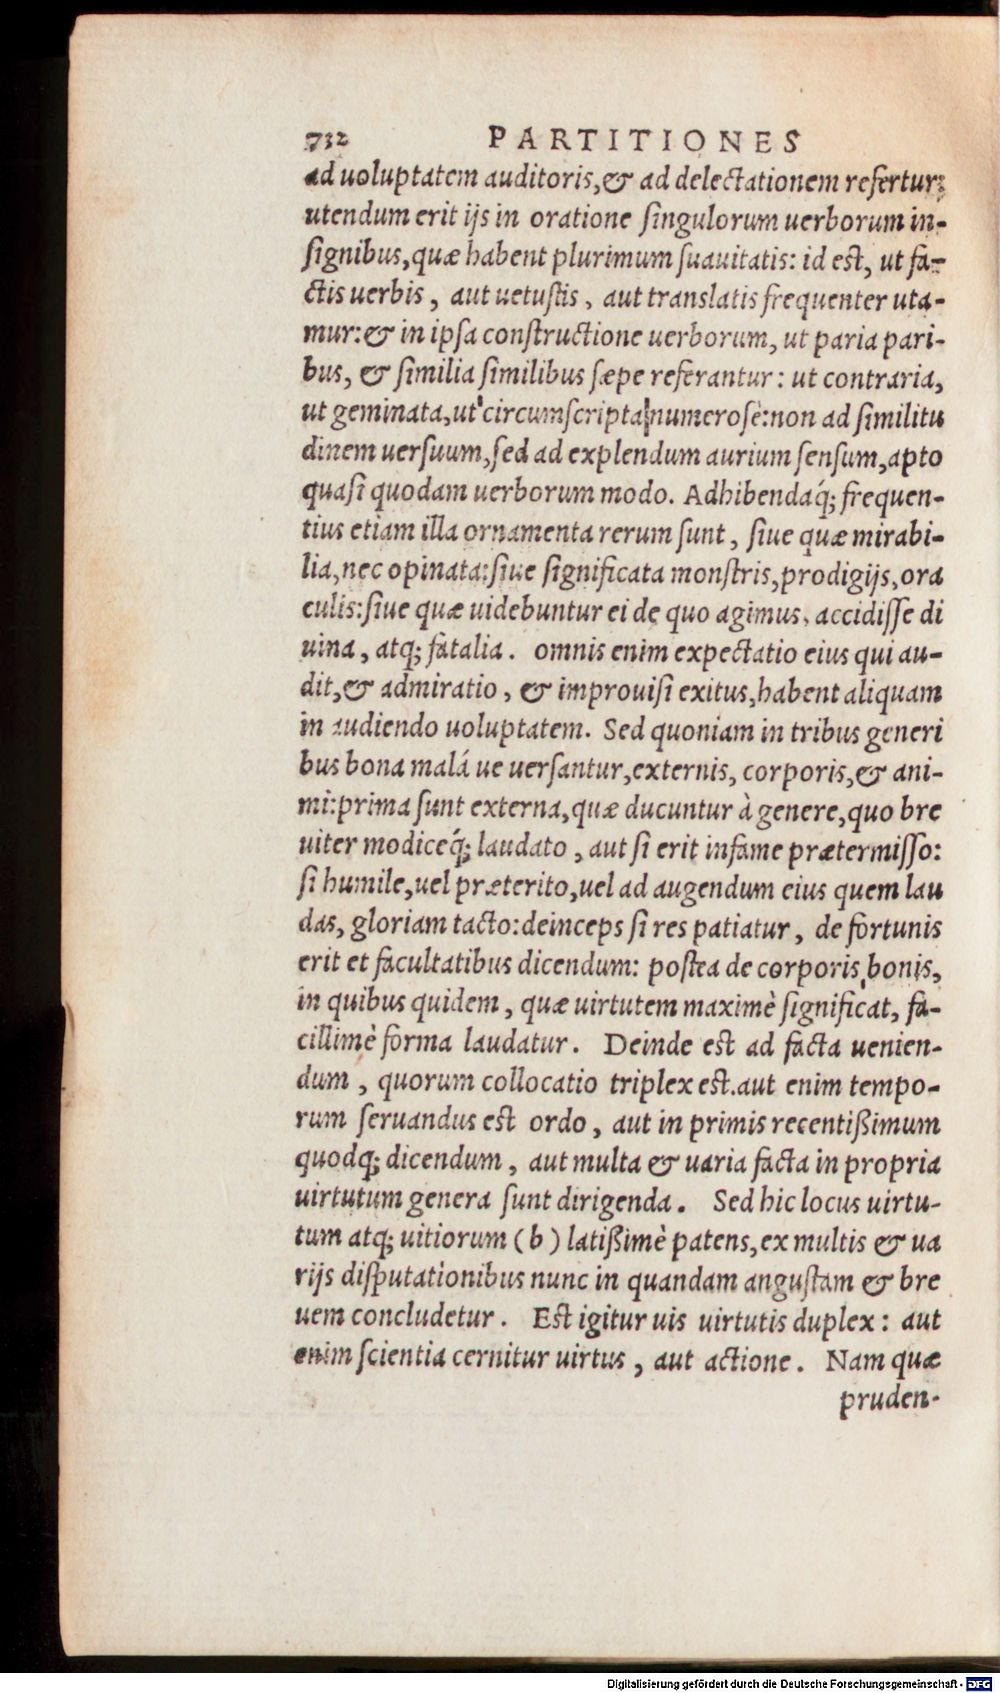 732 PARTITIONES
ad uoluptatem auditoris,& ad delectationem refertur:
utendum erit ijs in oratione ſingulorum uerborum in-
ſignibus,quæ habent plurimum ſuauitatis: id est, ut fa-
ctis uerbis, aut uetuſtis, aut translatis frequenter uta-
mur:& in ipſa conſtructione uerborum, ut paria pari-
bus, & ſimilia ſimilibus ſæpe referantur: ut contraria,
ut geminata,ut circumſcripta numeroſè:non ad ſimilitu
dinem uerſuum,ſed ad explendum aurium ſenſum,apto
quaſi quodam uerborum modo. Adhibendaq́; frequen-
tius etiam illa ornamenta rerum ſunt, ſiue quæ mirabi-
lia,nec opinata:ſiue ſignificata monſtris,prodigijs,ora
culis:ſiue quæ uidebuntur ei de quo agimus, accidiſſe di
uina, atq; fatalia. omnis enim expectatio eius qui au-
dit,& admiratio, & improuiſi exitus,habent aliquam
in audiendo uoluptatem. Sed quoniam in tribus generi
bus bona malá ue uerſantur,externis, corporis,& ani-
mi:prima ſunt externa,quæ ducuntur à genere,quo bre
uiter modiceq́; laudato, aut ſi erit infame prætermiſſo:
ſi humile,uel præterito,uel ad augendum eius quem lau
das, gloriam tacto:deinceps ſi res patiatur, de fortunis
erit et facultatibus dicendum: poſtea de corporis bonis,
in quibus quidem, quæ uirtutem maximè ſignificat, fa-
cillimè forma laudatur. Deinde est ad facta uenien-
dum, quorum collocatio triplex est.aut enim tempo-
rum ſeruandus est ordo, aut in primis recentißimum
quodq; dicendum, aut multa & uaria facta in propria
uirtutum genera ſunt dirigenda. Sed hic locus uirtu-
tum atq; uitiorum (b) latißimè patens,ex multis & ua
rijs diſputationibus nunc in quandam anguſtam & bre
uem concludetur. Est igitur uis uirtutis duplex: aut
enim ſcientia cernitur uirtus, aut actione. Nam quæ
pruden-
Digitalisierung gefördert durch die Deutsche Forschungsgemeinschaft - DFG